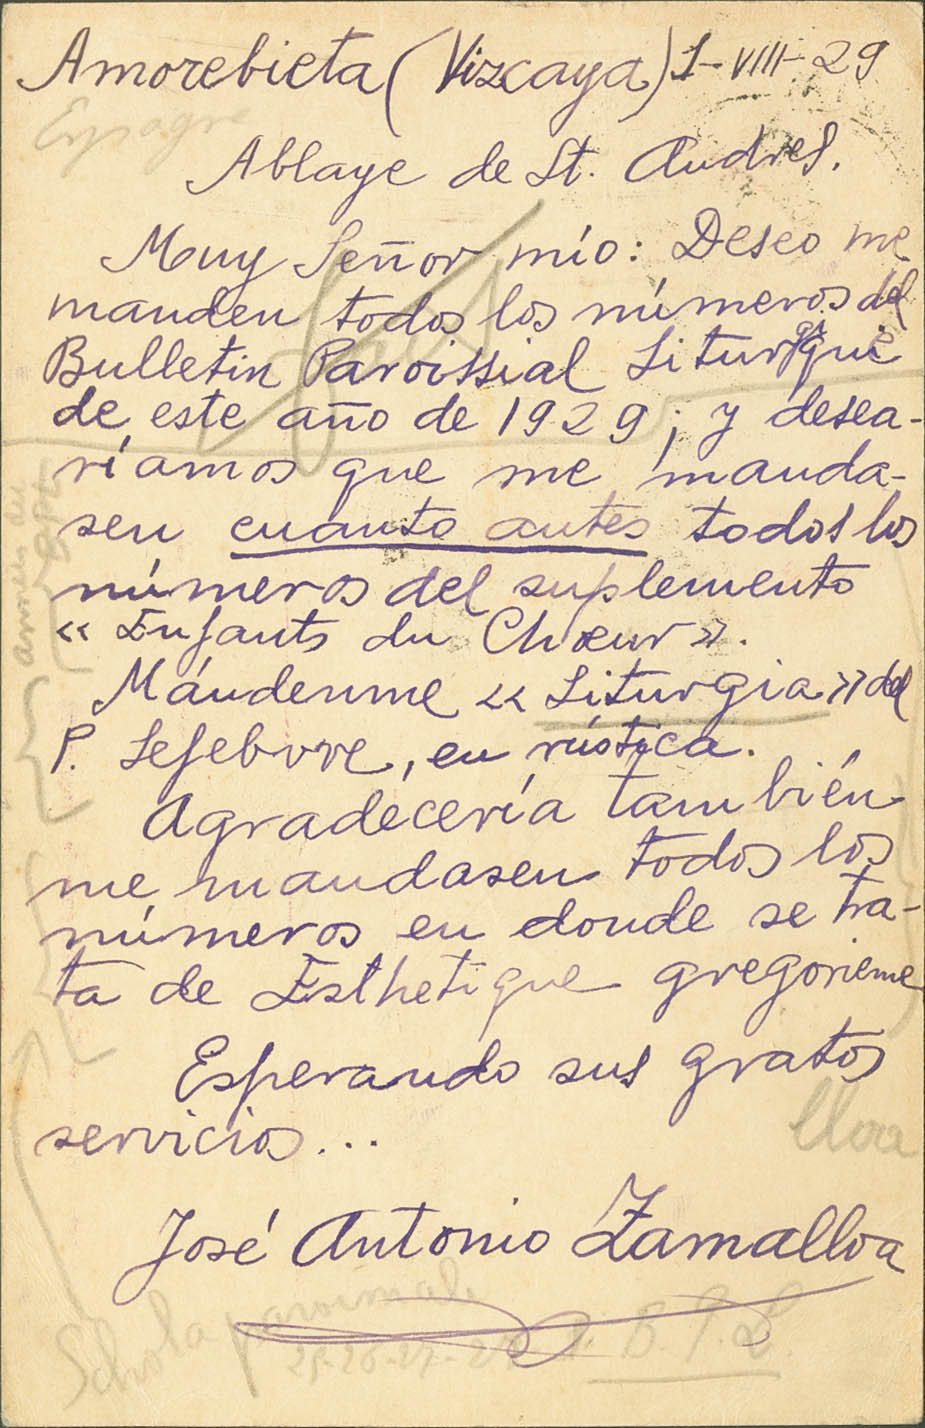 Amorebieta (Vizcaya) 1-VIII-29
Espagne
Ablaye de St. Andres.
Muy Señor mío: Deseo me
manden todos los números del
Bulletin Paroissial Liturgique
de este año de 1929; y desea-
ríamos que me manda-
sen cuanto antes todos los
números del suplemento
« Enfants du Chœur ».
Mándenme « Liturgia » del
P. Lefebvre, en rústica.
Agradecería también
me mandasen todos los
números en donde se tra-
ta de Esthetique gregorienne
Esperando sus gratos
servicios...
lloa
José Antonio Zamalloa
Schola paroissiale
B.P.L.